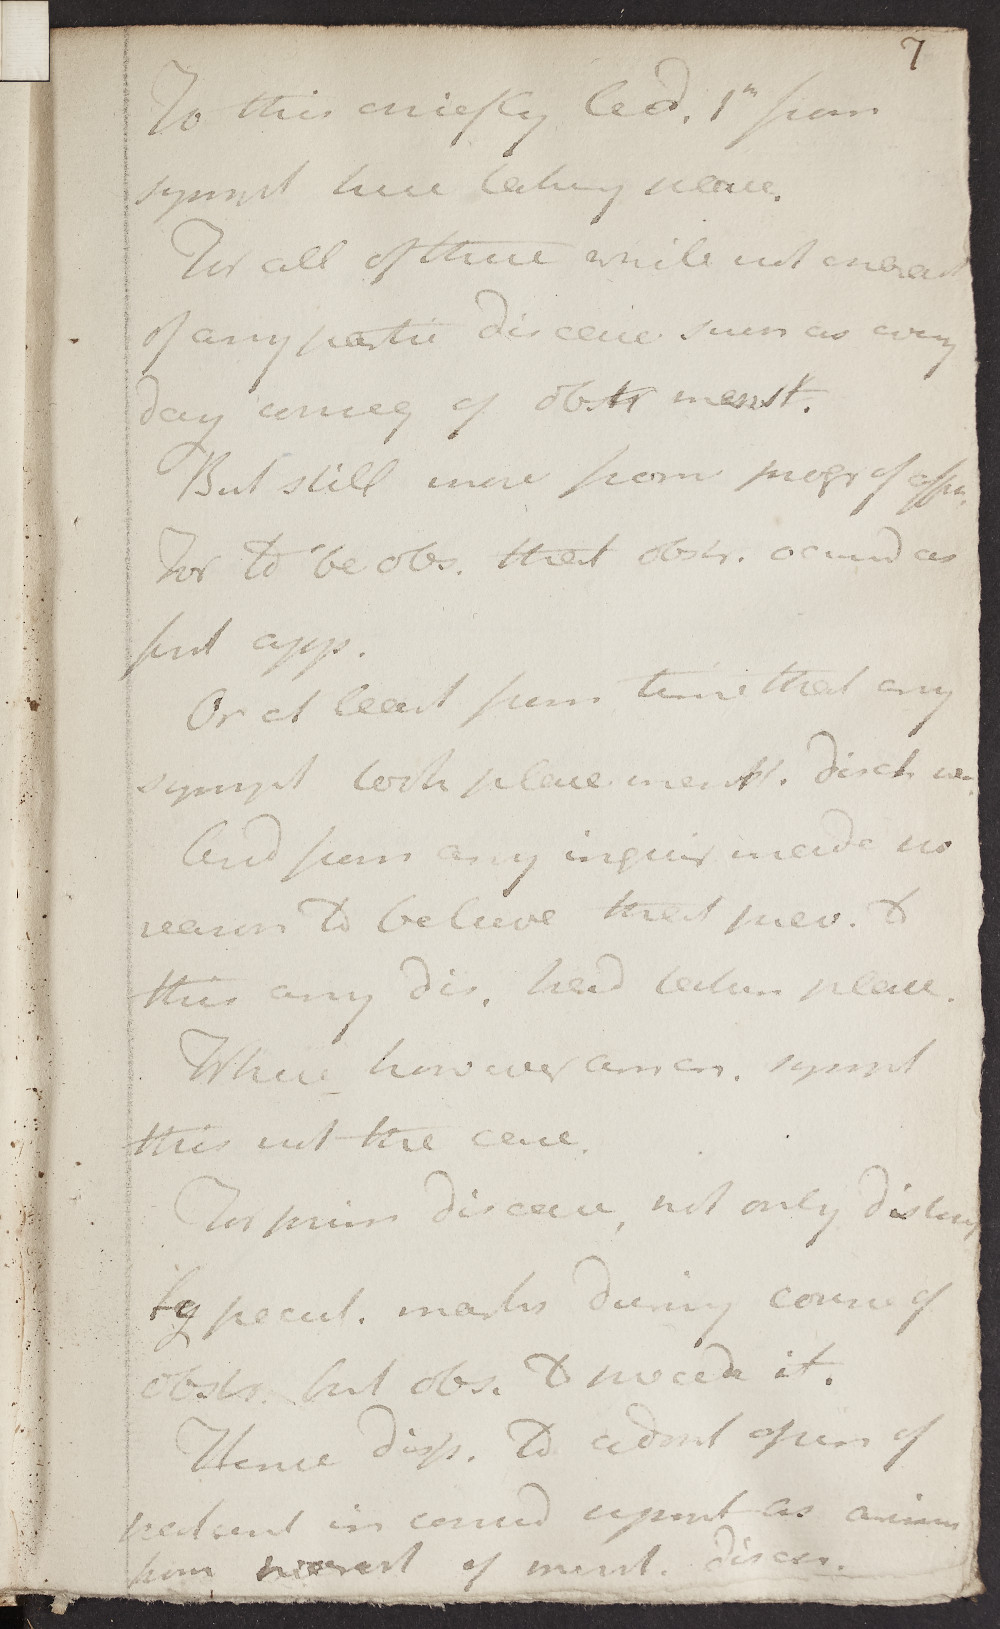 7
To this chiefly led. 1st from
sympt here taking place.
For all of these while not charact
of any partic disease such as every
day conseq of obstr menst.
But still more from progr of affn.
For to be obs. that obstr. occurred as
first app.
Or at least from time that any
sympt took place menstr. disch
And from any inquir made no
reason to believe that prev. to
this any dis. had taken place.
Where however aman. sympt
this not the case.
For prim disease, not only disting
by pecul. marks during course of
obstr. but obs. to precede it.
Hence disp. to admit opin of
patient in consid sympt as arising
from of menst. disch.